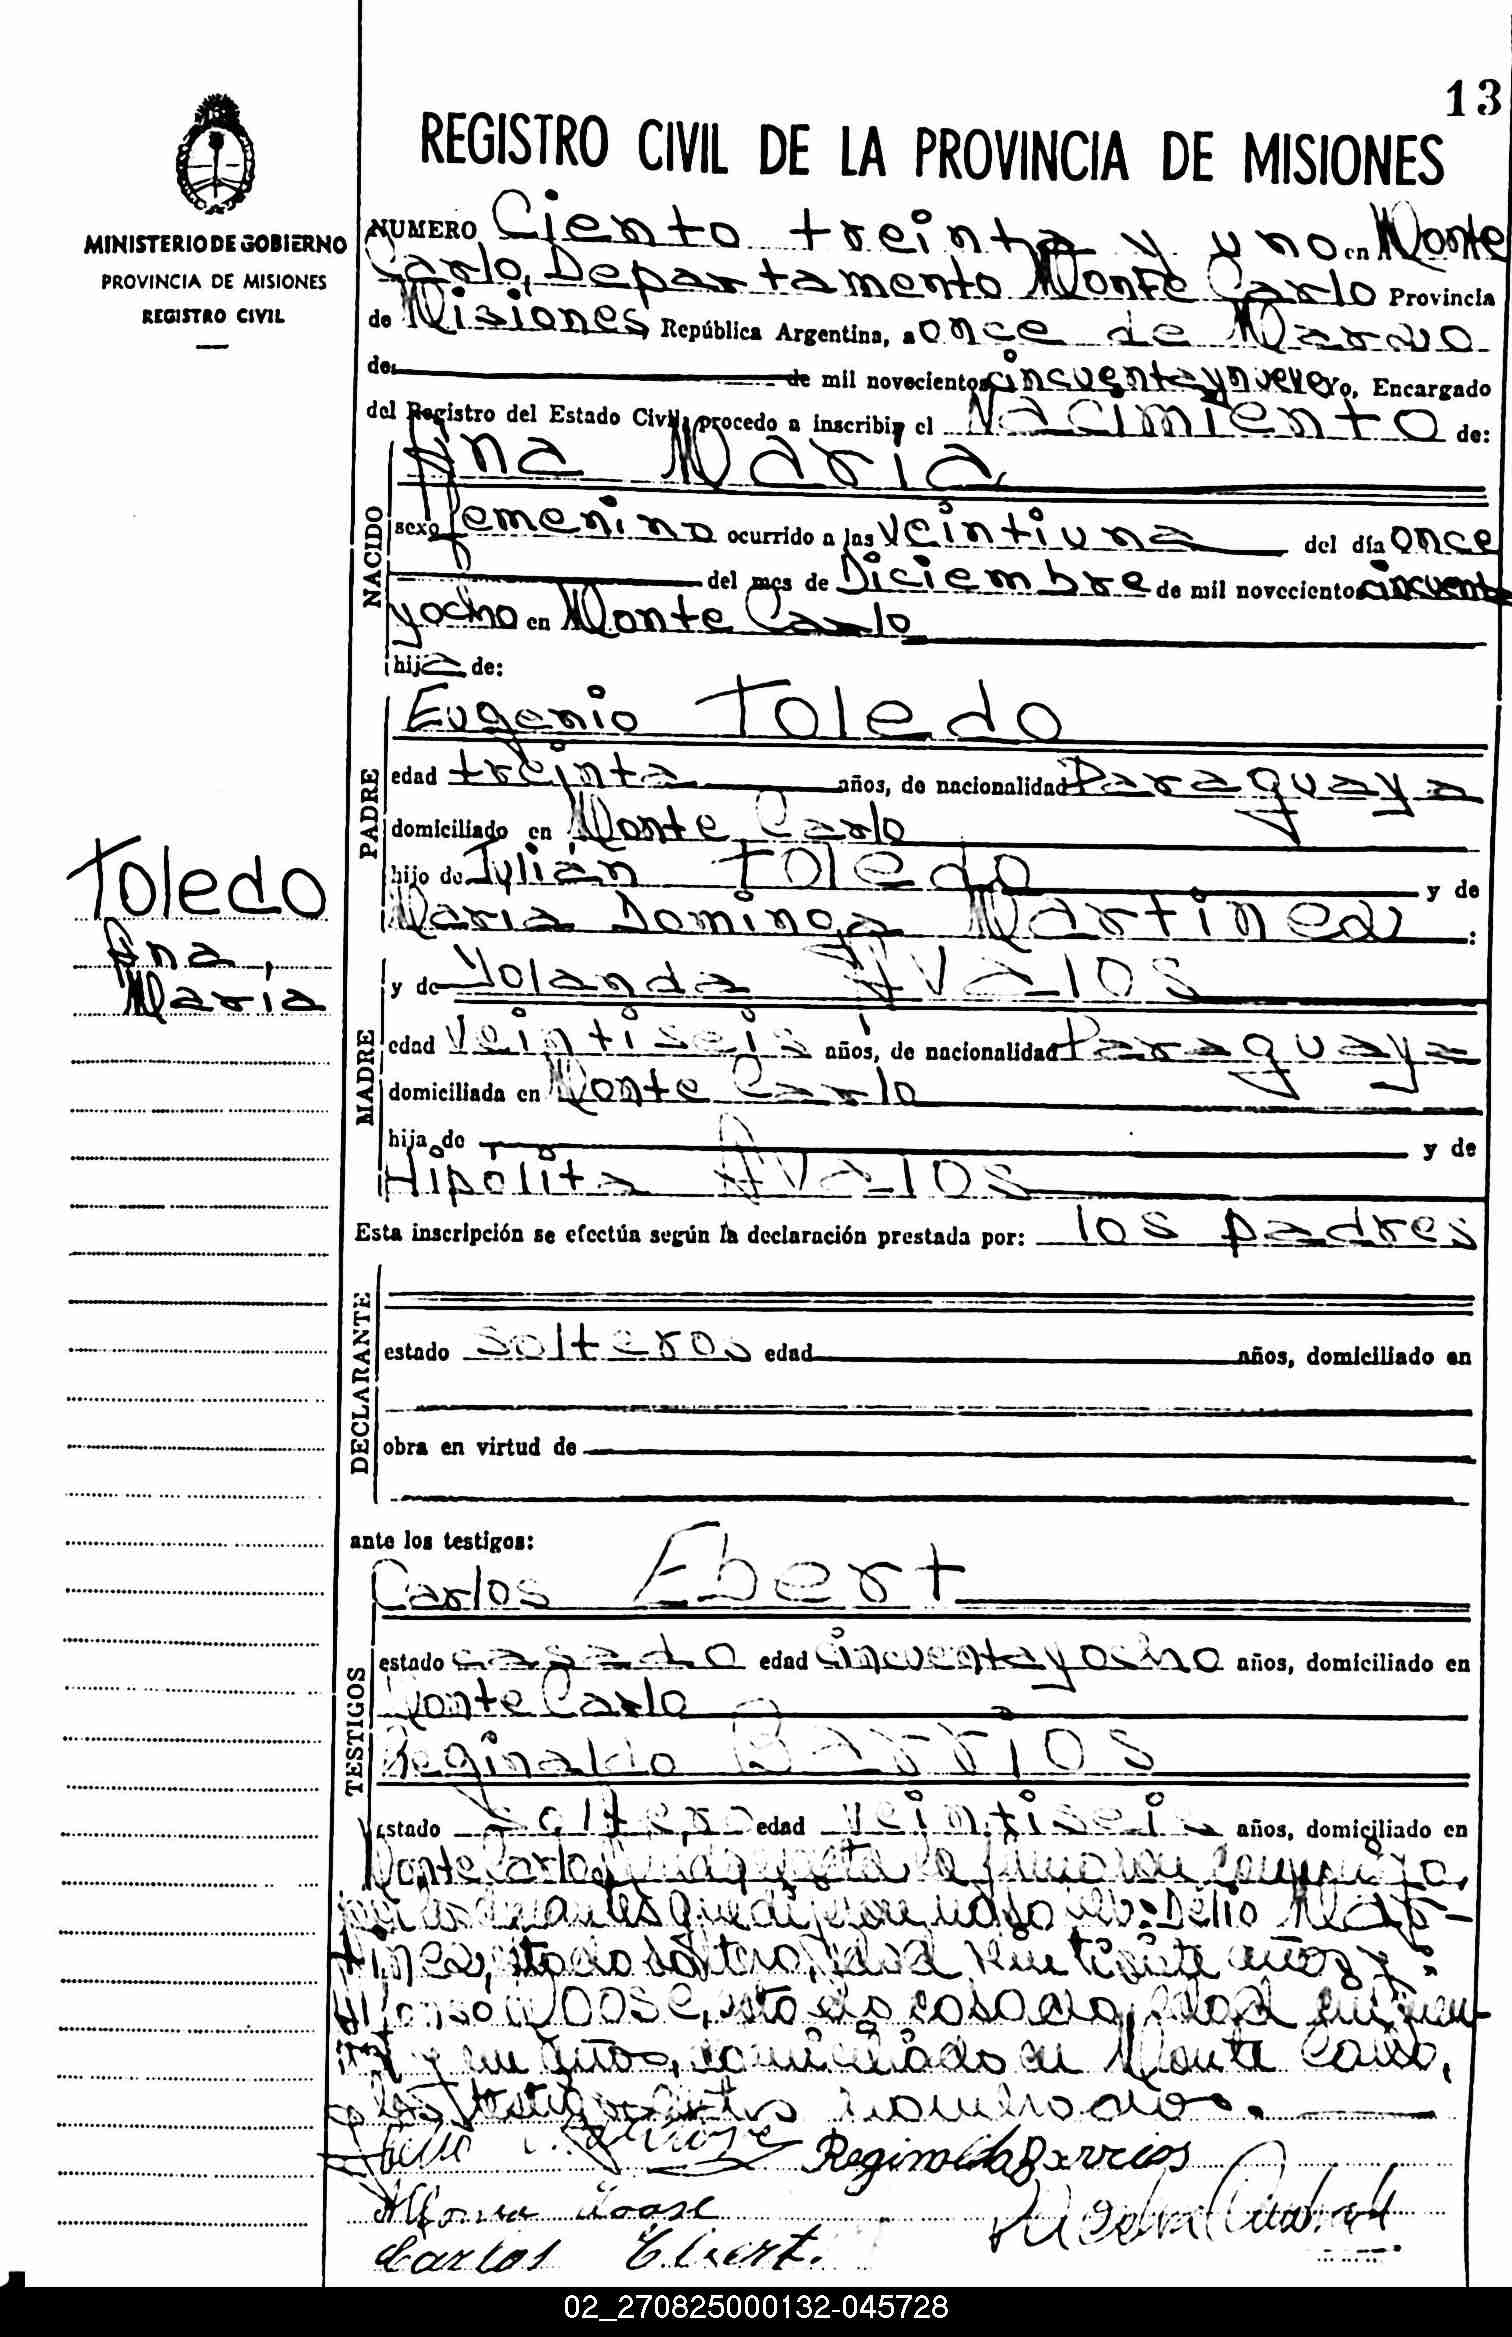 13
REGISTRO CIVIL DE LA PROVINCIA DE MISIONES
MINISTERIO DE GOBIERNO
PROVINCIA DE MISIONES
REGISTRO CIVIL
NUMERO Ciento treinta y uno en Monte
Carlo, Departamento Monte Carlo Provincia
de Misiones, República Argentina, a once de Marzo
de de mil novecientos cincuenta y nueve yo, Encargado
del Registro del Estado Civil, procedo a inscribir el Nacimiento de:
NACIDO
Ana María
sexo femenino ocurrido a las veintiuna del día once
del mes de Diciembre de mil novecientos cincuenta
y ocho en Monte Carlo
hija de:
PADRE
Eugenio Toledo
edad treinta años, de nacionalidad Paraguaya
domiciliado en Monte Carlo
hijo de Julián Toledo y de
María Dominga Martinez :
Toledo
Ana,
María
MADRE
y de Yolanda Avalos
edad veintiseis años, de nacionalidad Paraguaya
domiciliada en Monte Carlo
hija de y de
Hipólita Avalos
Esta inscripción se efectúa según la declaración prestada por: los padres
DECLARANTE
estado solteros edad años, domiciliado en
obra en virtud de
ante los testigos:
TESTIGOS
Carlos Ebert
estado casado edad cincuenta y ocho años, domiciliado en
Monte Carlo
Reginaldo Barrios
estado soltero edad veintiseis años, domiciliado en
Monte Carlo, la firmaron conmigo,
Delio Mar-
tinez, estado soltero, edad años y:
Alfonso Joose, estado casado, edad cincuen-
ta y un años, domiciliado en Monte Carlo,
los testigos nombrados.
Reginaldo Barrios
Alfonso Joose
Carlos Ebert.
02_270825000132-045728